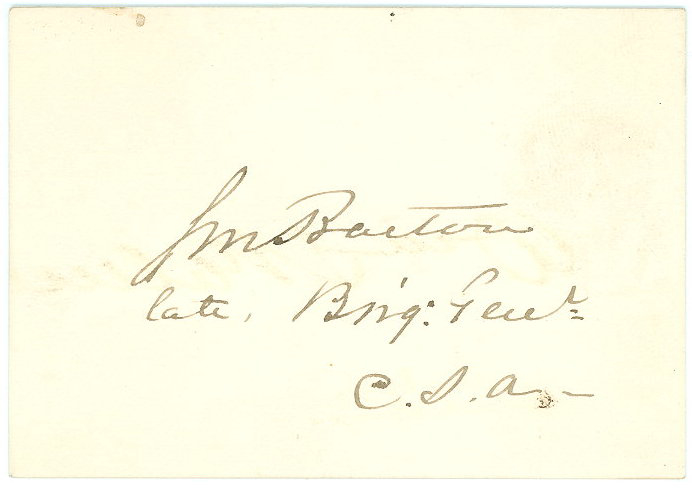 SM Barton
late, Brig: Genl
C. S. A. —